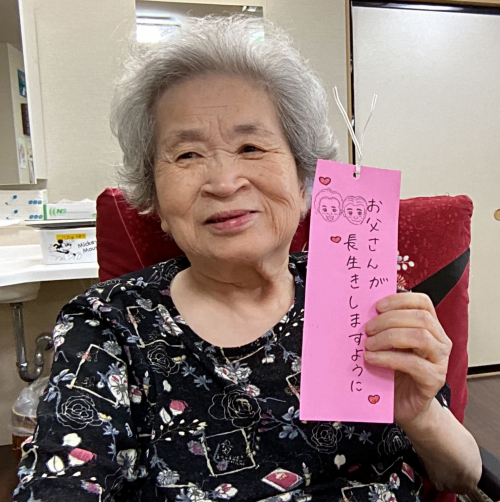 お父さんが
長生きしますように
Mickey
Mouse